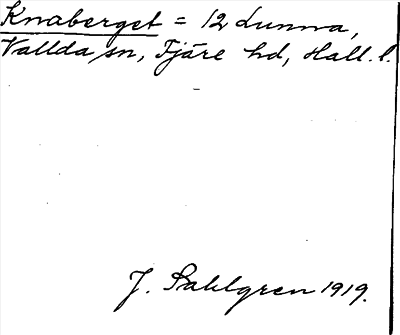 Knaberget = 12 Lunna,
Vallda sn, Fjäre hd, Hall. l.
J. Sahlgren 1919.